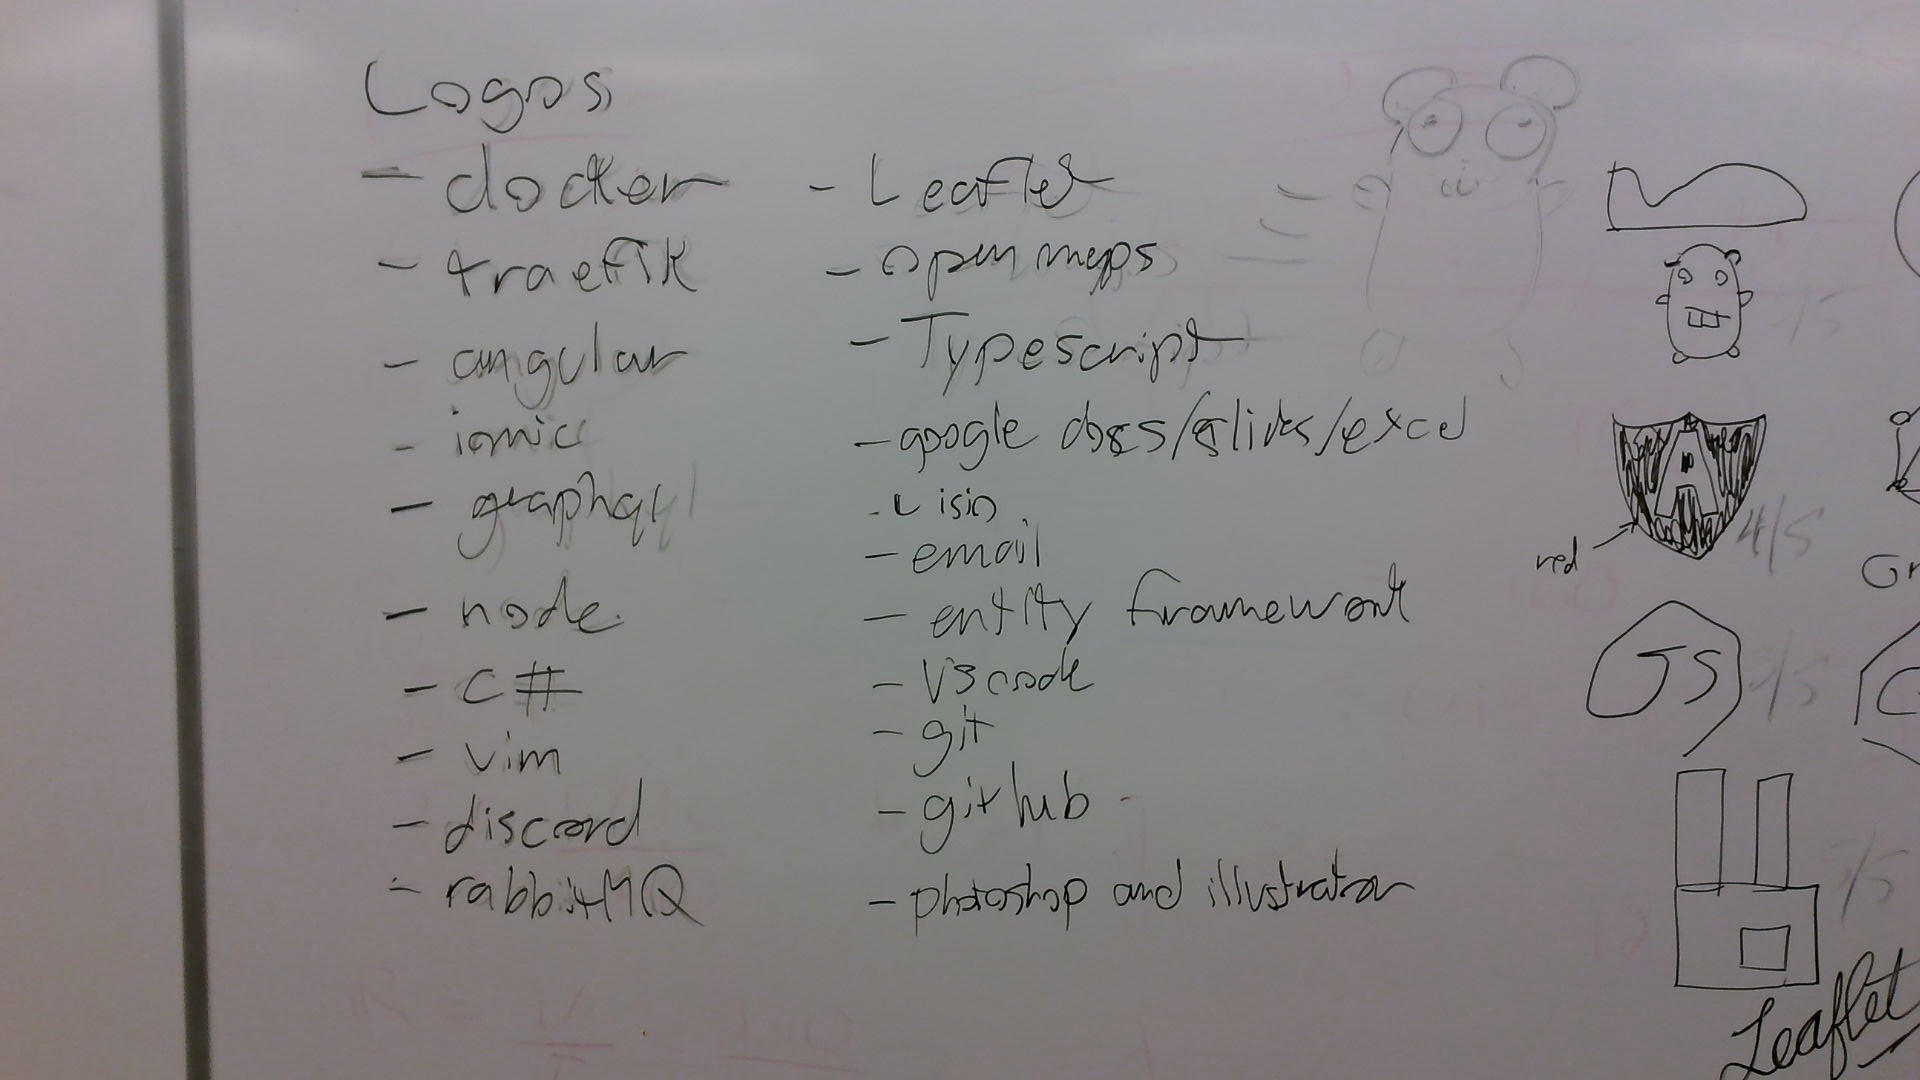 Logos
- docker
- traefik
- angular
- ionic
- graphql
- node
- C#
- vim
- discord
- rabbitMQ
- Leaflet
- open maps
- Typescript
- google docs/slides/excel
- visio
- email
- entity framework
- VS code
- git
- github
- photoshop and illustrator
4/5
red
Gr
JS
/5
/5
Leaflet